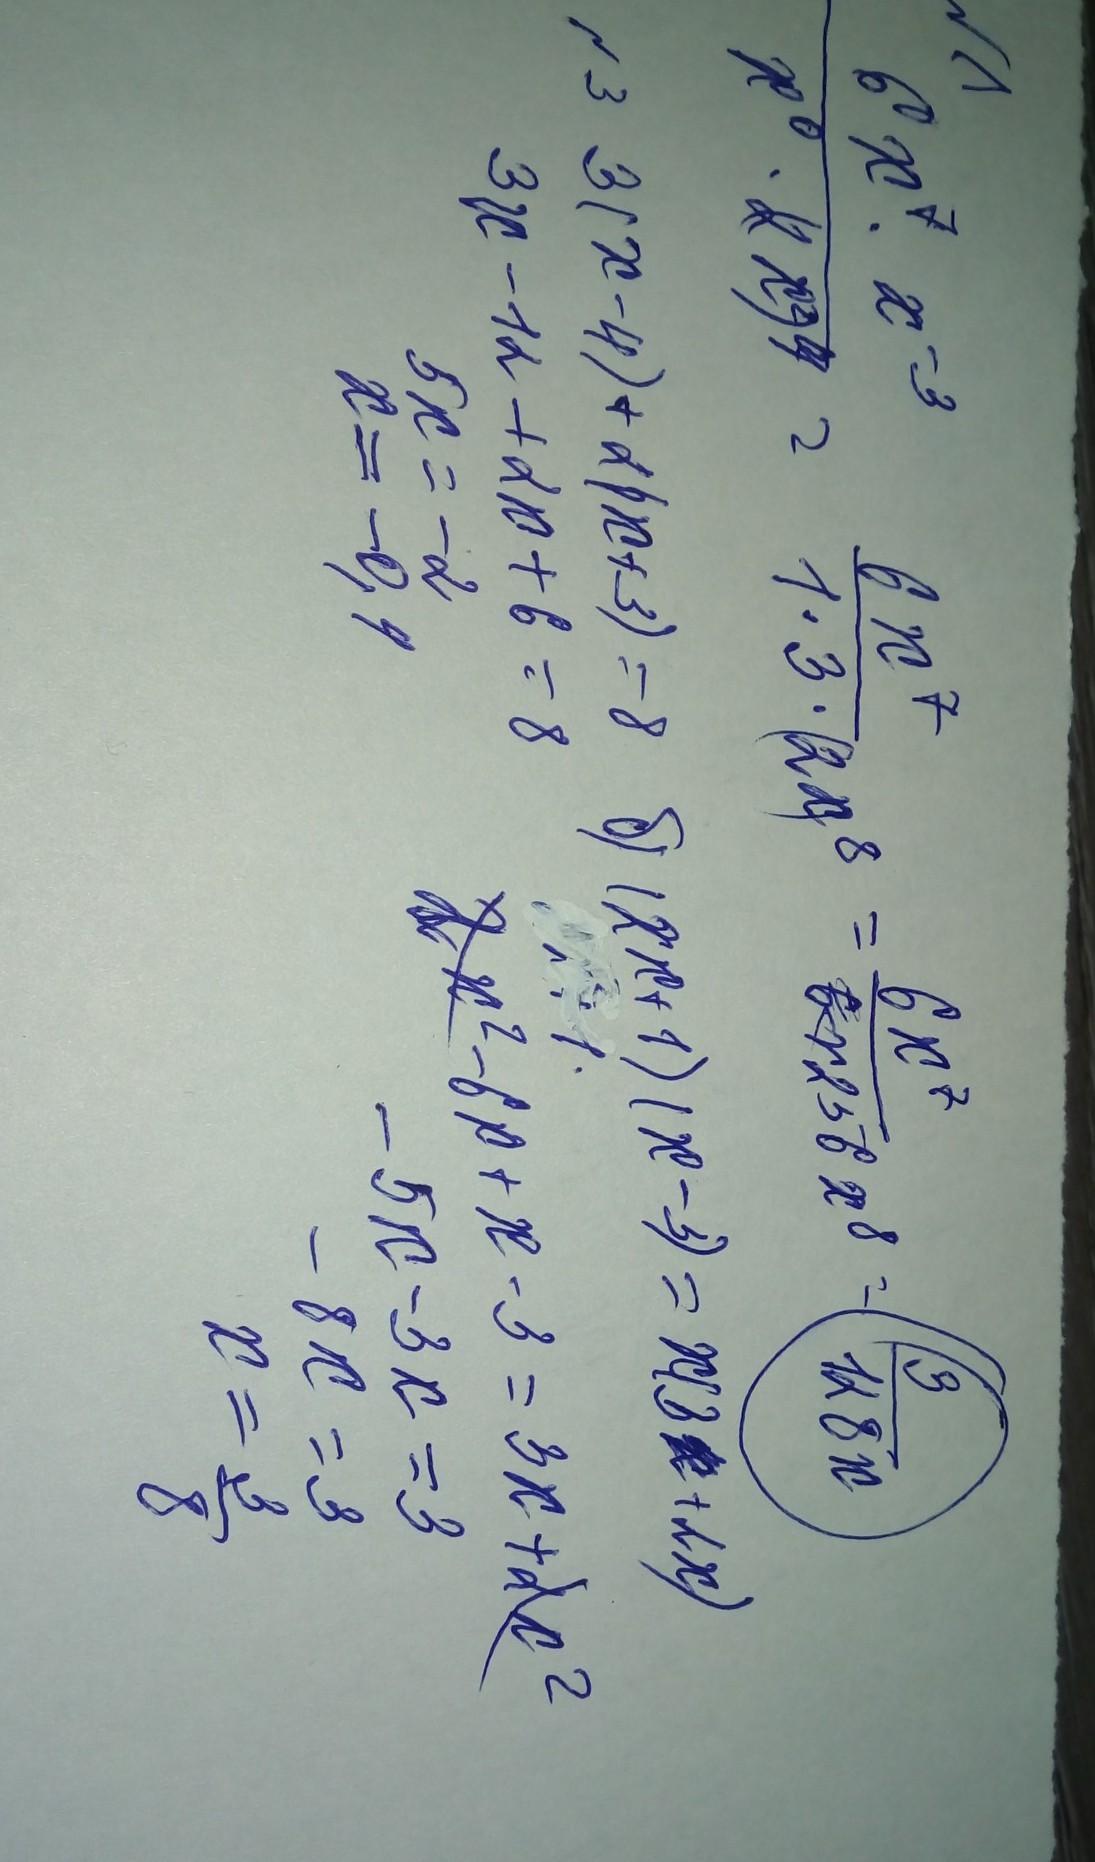 №1
6x⁷ · x⁻³
x⁰ · (2x²)⁴ = 6x⁷ / 1 · 3 · (2x)⁸ = 6x⁷ / 256x⁸ = 3 / 128x
№3 3(x-4)+2(x+3)=-8
3x-12+2x+6=-8
5x=-2
x=-0,4
б) (2x+1)(x-3)=x(3+2x)
2x²-6x+x-3=3x+2x²
-5x-3x=3
-8x=3
x=-3/8